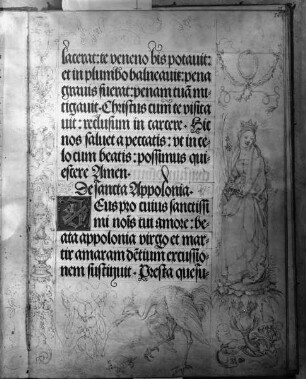 laterat: te veneno bis potauit:
et in plumbo balneauit: pena
grauis fuerat: penam tuā mi-
tigauit. Christus cum te visita
uit: reclusum in carcere. Sic
nos saluet a peccatis: vt in ce-
lo cum beatis: possimus qui-
escere Amen.
De sancta Appolonia.
Deus pro cuius sanctissi
mi nois tui amore: be-
ata appolonia virgo et mar-
tir amaram dētium excussio-
nem sustinuit. Presta quesu-